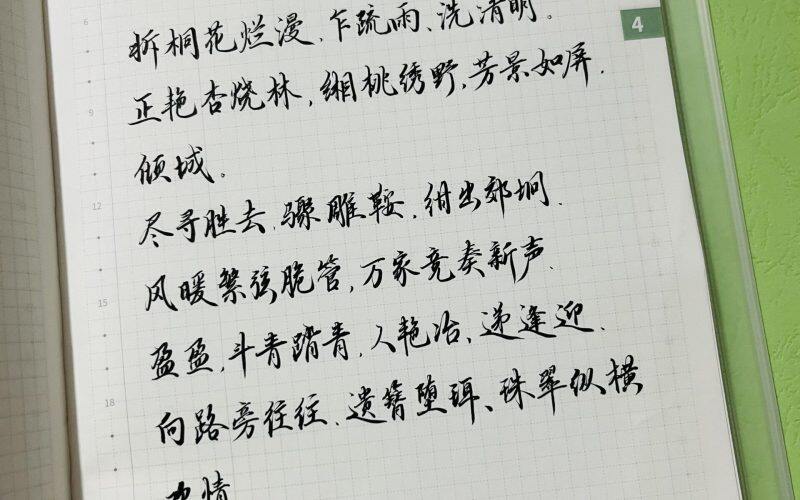 4
拆桐花烂漫、乍疏雨、洗清明。
9
正艳杏烧林，缃桃绣野，芳景如屏.
倾城。
12
尽寻胜去,骤雕鞍,绀出郊坰.
风暖繁弦脆管,万家竞奏新声.
15
盈盈,斗青踏青,人艳冶、递逢迎.
向路旁往往、遗簪堕珥、珠翠纵横
18
欢情